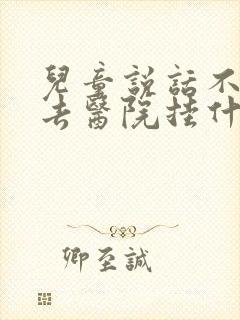 兒童説話不
去醫院挂什
卿至誠